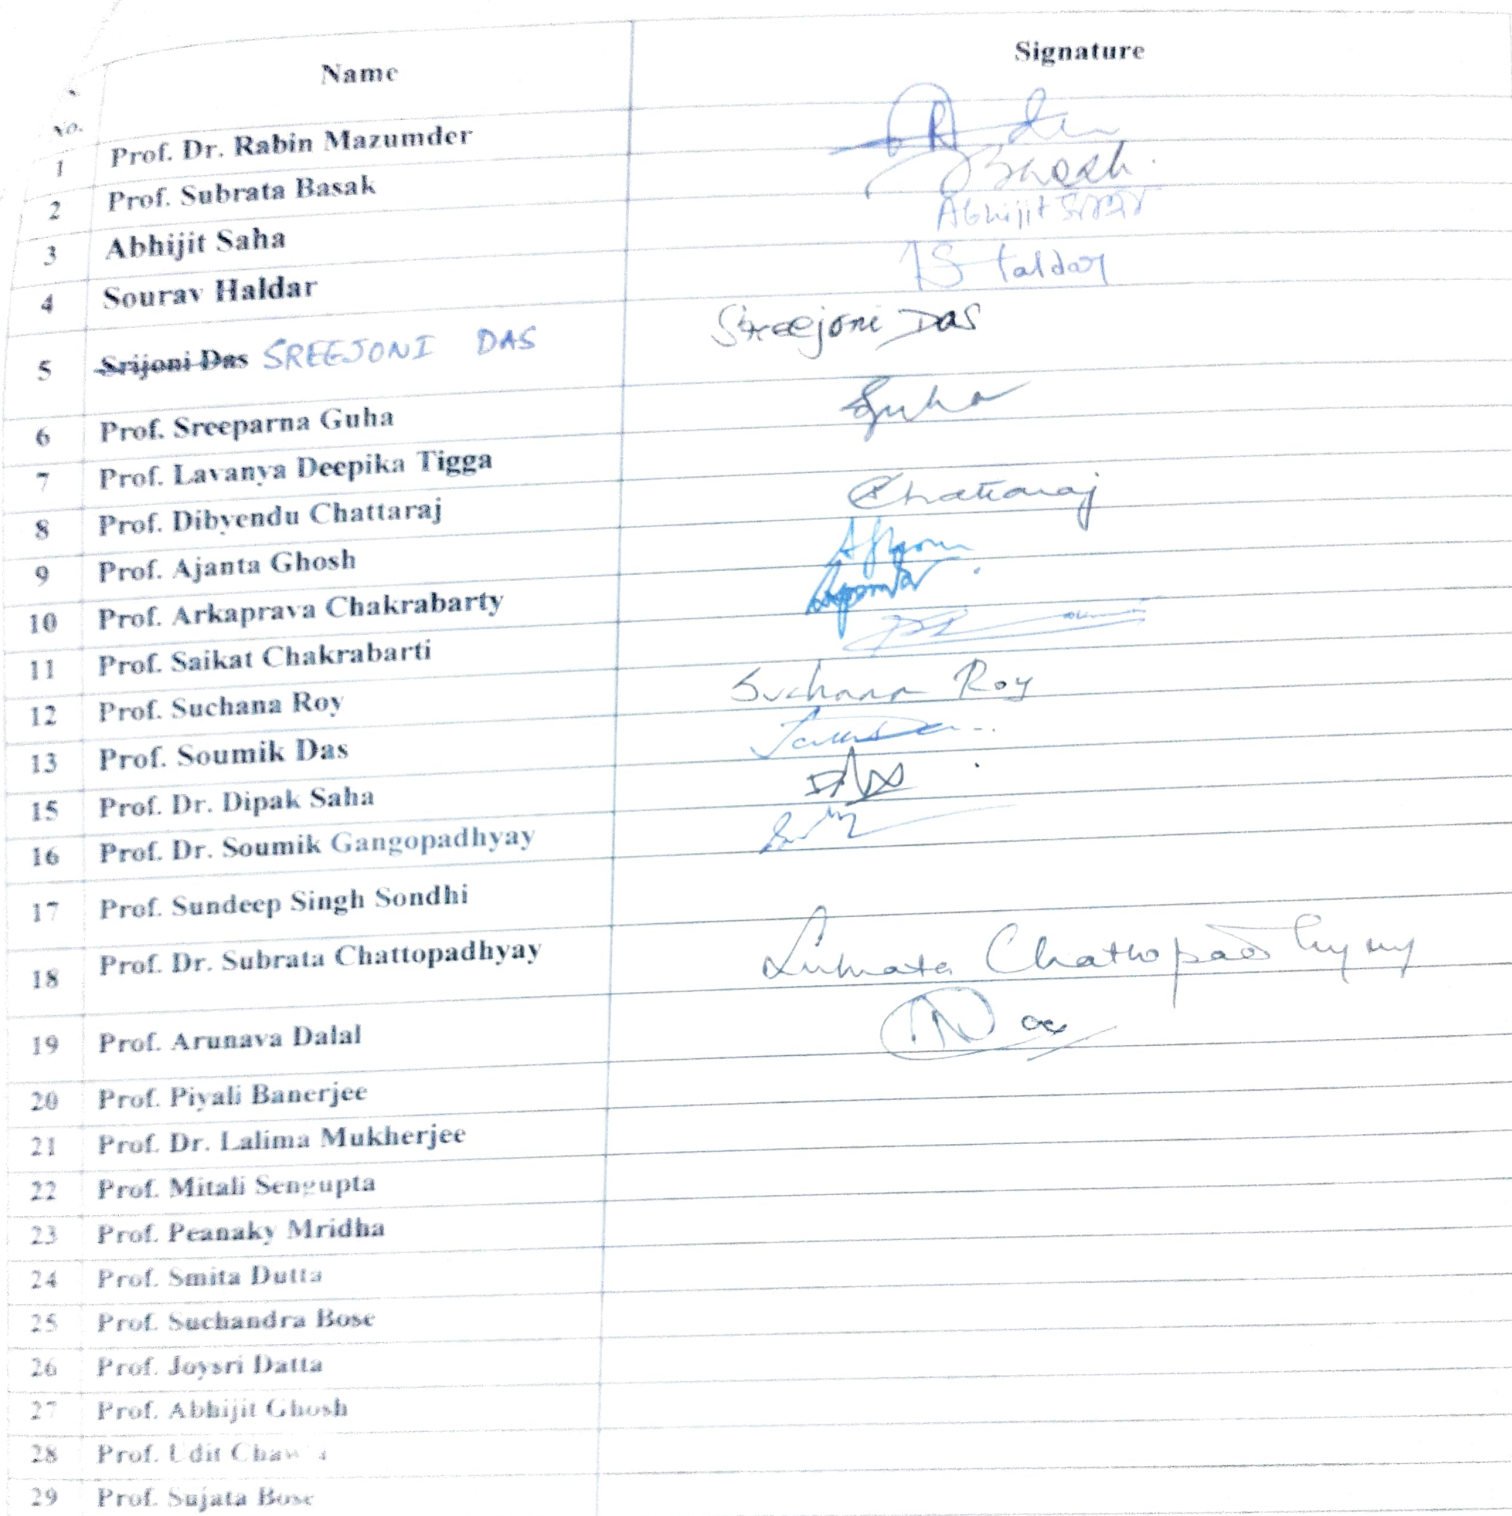 No. Name Signature
1 Prof. Dr. Rabin Mazumder
2 Prof. Subrata Basak
3 Abhijit Saha Abhijit
4 Sourav Haldar
5 Srijoni Das SREEJONI DAS Sreejoni Das
6 Prof. Sreeparna Guha Guha
7 Prof. Lavanya Deepika Tigga
8 Prof. Dibyendu Chattaraj Chattaraj
9 Prof. Ajanta Ghosh
10 Prof. Arkaprava Chakrabarty
11 Prof. Saikat Chakrabarti
12 Prof. Suchana Roy Suchana Roy
13 Prof. Soumik Das
15 Prof. Dr. Dipak Saha
16 Prof. Dr. Soumik Gangopadhyay
17 Prof. Sundeep Singh Sondhi
18 Prof. Dr. Subrata Chattopadhyay Subrata Chattopadhyay
19 Prof. Arunava Dalal
20 Prof. Piyali Banerjee
21 Prof. Dr. Lalima Mukherjee
22 Prof. Mitali Sengupta
23 Prof. Peanaky Mridha
24 Prof. Smita Dutta
25 Prof. Suchandra Bose
26 Prof. Joysri Datta
27 Prof. Abhijit Ghosh
28 Prof. Udit
29 Prof. Sujata Bose